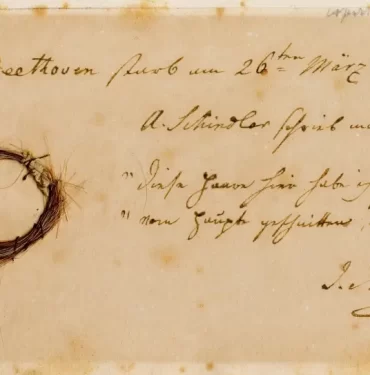 Beethoven starb am 26ten März
A. Schindler schrieb
" diese Haare hier habe ich
" vom Haupte geschnitten